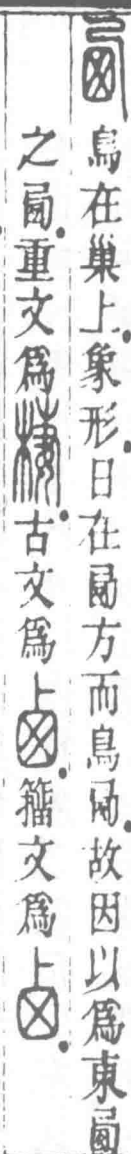 鳥在巢上。象形。日在卥方而鳥卥。故因以爲東卥
之卥。重文爲棲。古文爲卤。籀文爲卤。